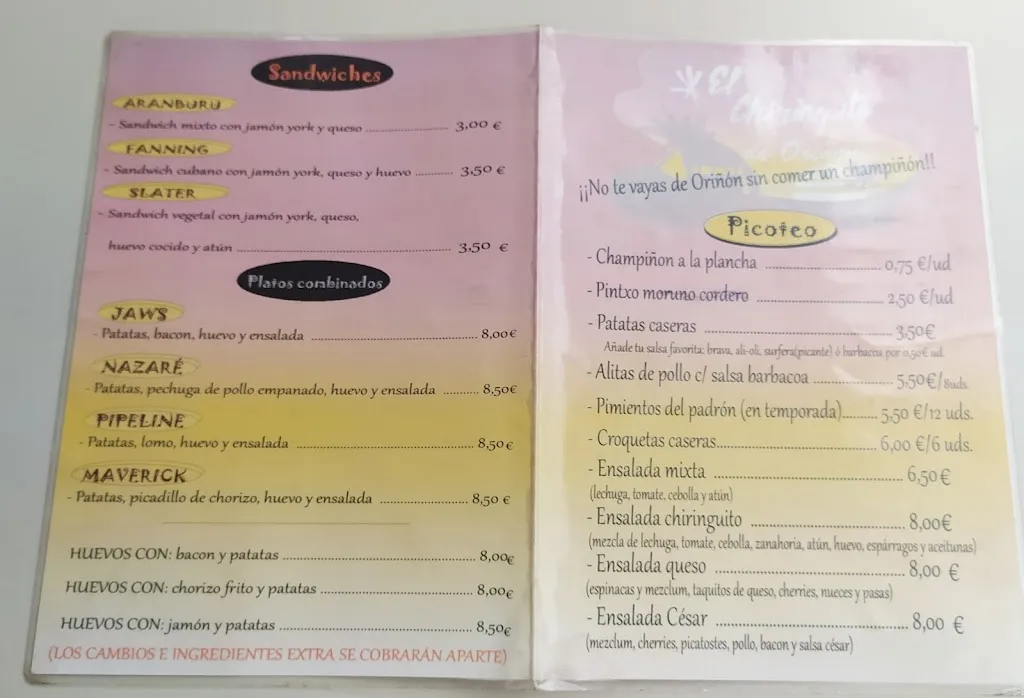 Sandwiches
ARANBURU
- Sandwich mixto con jamón york y queso ........ 3,00 €
FANNING
- Sandwich cubano con jamón york, queso y huevo ........ 3,50 €
SLATER
- Sandwich vegetal con jamón york, queso,
huevo cocido y atún ........ 3,50 €
Platos combinados
JAWS
- Patatas, bacon, huevo y ensalada ........ 8,00€
NAZARÉ
- Patatas, pechuga de pollo empanado, huevo y ensalada ........ 8,50€
PIPELINE
- Patatas, lomo, huevo y ensalada ........ 8,50€
MAVERICK
- Patatas, picadillo de chorizo, huevo y ensalada ........ 8,50 €
HUEVOS CON: bacon y patatas ........ 8,00€
HUEVOS CON: chorizo frito y patatas ........ 8,00€
HUEVOS CON: jamón y patatas ........ 8,50€
(LOS CAMBIOS E INGREDIENTES EXTRA SE COBRARÁN APARTE)
El
Chiringuito
de
¡¡No te vayas de Oriñón sin comer un champiñón!!
Picoteo
- Champiñon a la plancha ........ 0,75 €/ud
- Pintxo moruno cordero ........ 2,50 €/ud
- Patatas caseras ........ 3,50€
Añade tu salsa favorita: brava, ali-oli, surfera(picante) ó barbacoa por 0,50€ ud.
- Alitas de pollo c/ salsa barbacoa ........ 5,50€/8uds.
- Pimientos del padrón (en temporada)........ 5,50 €/12 uds.
- Croquetas caseras........ 6,00 €/6 uds.
- Ensalada mixta ........ 6,50€
(lechuga, tomate, cebolla y atún)
- Ensalada chiringuito ........ 8,00€
(mezcla de lechuga, tomate, cebolla, zanahoria, atún, huevo, espárragos y aceitunas)
- Ensalada queso ........ 8,00 €
(espinacas y mezclum, taquitos de queso, cherries, nueces y pasas)
- Ensalada César ........ 8,00 €
(mezclum, cherries, picatostes, pollo, bacon y salsa césar)